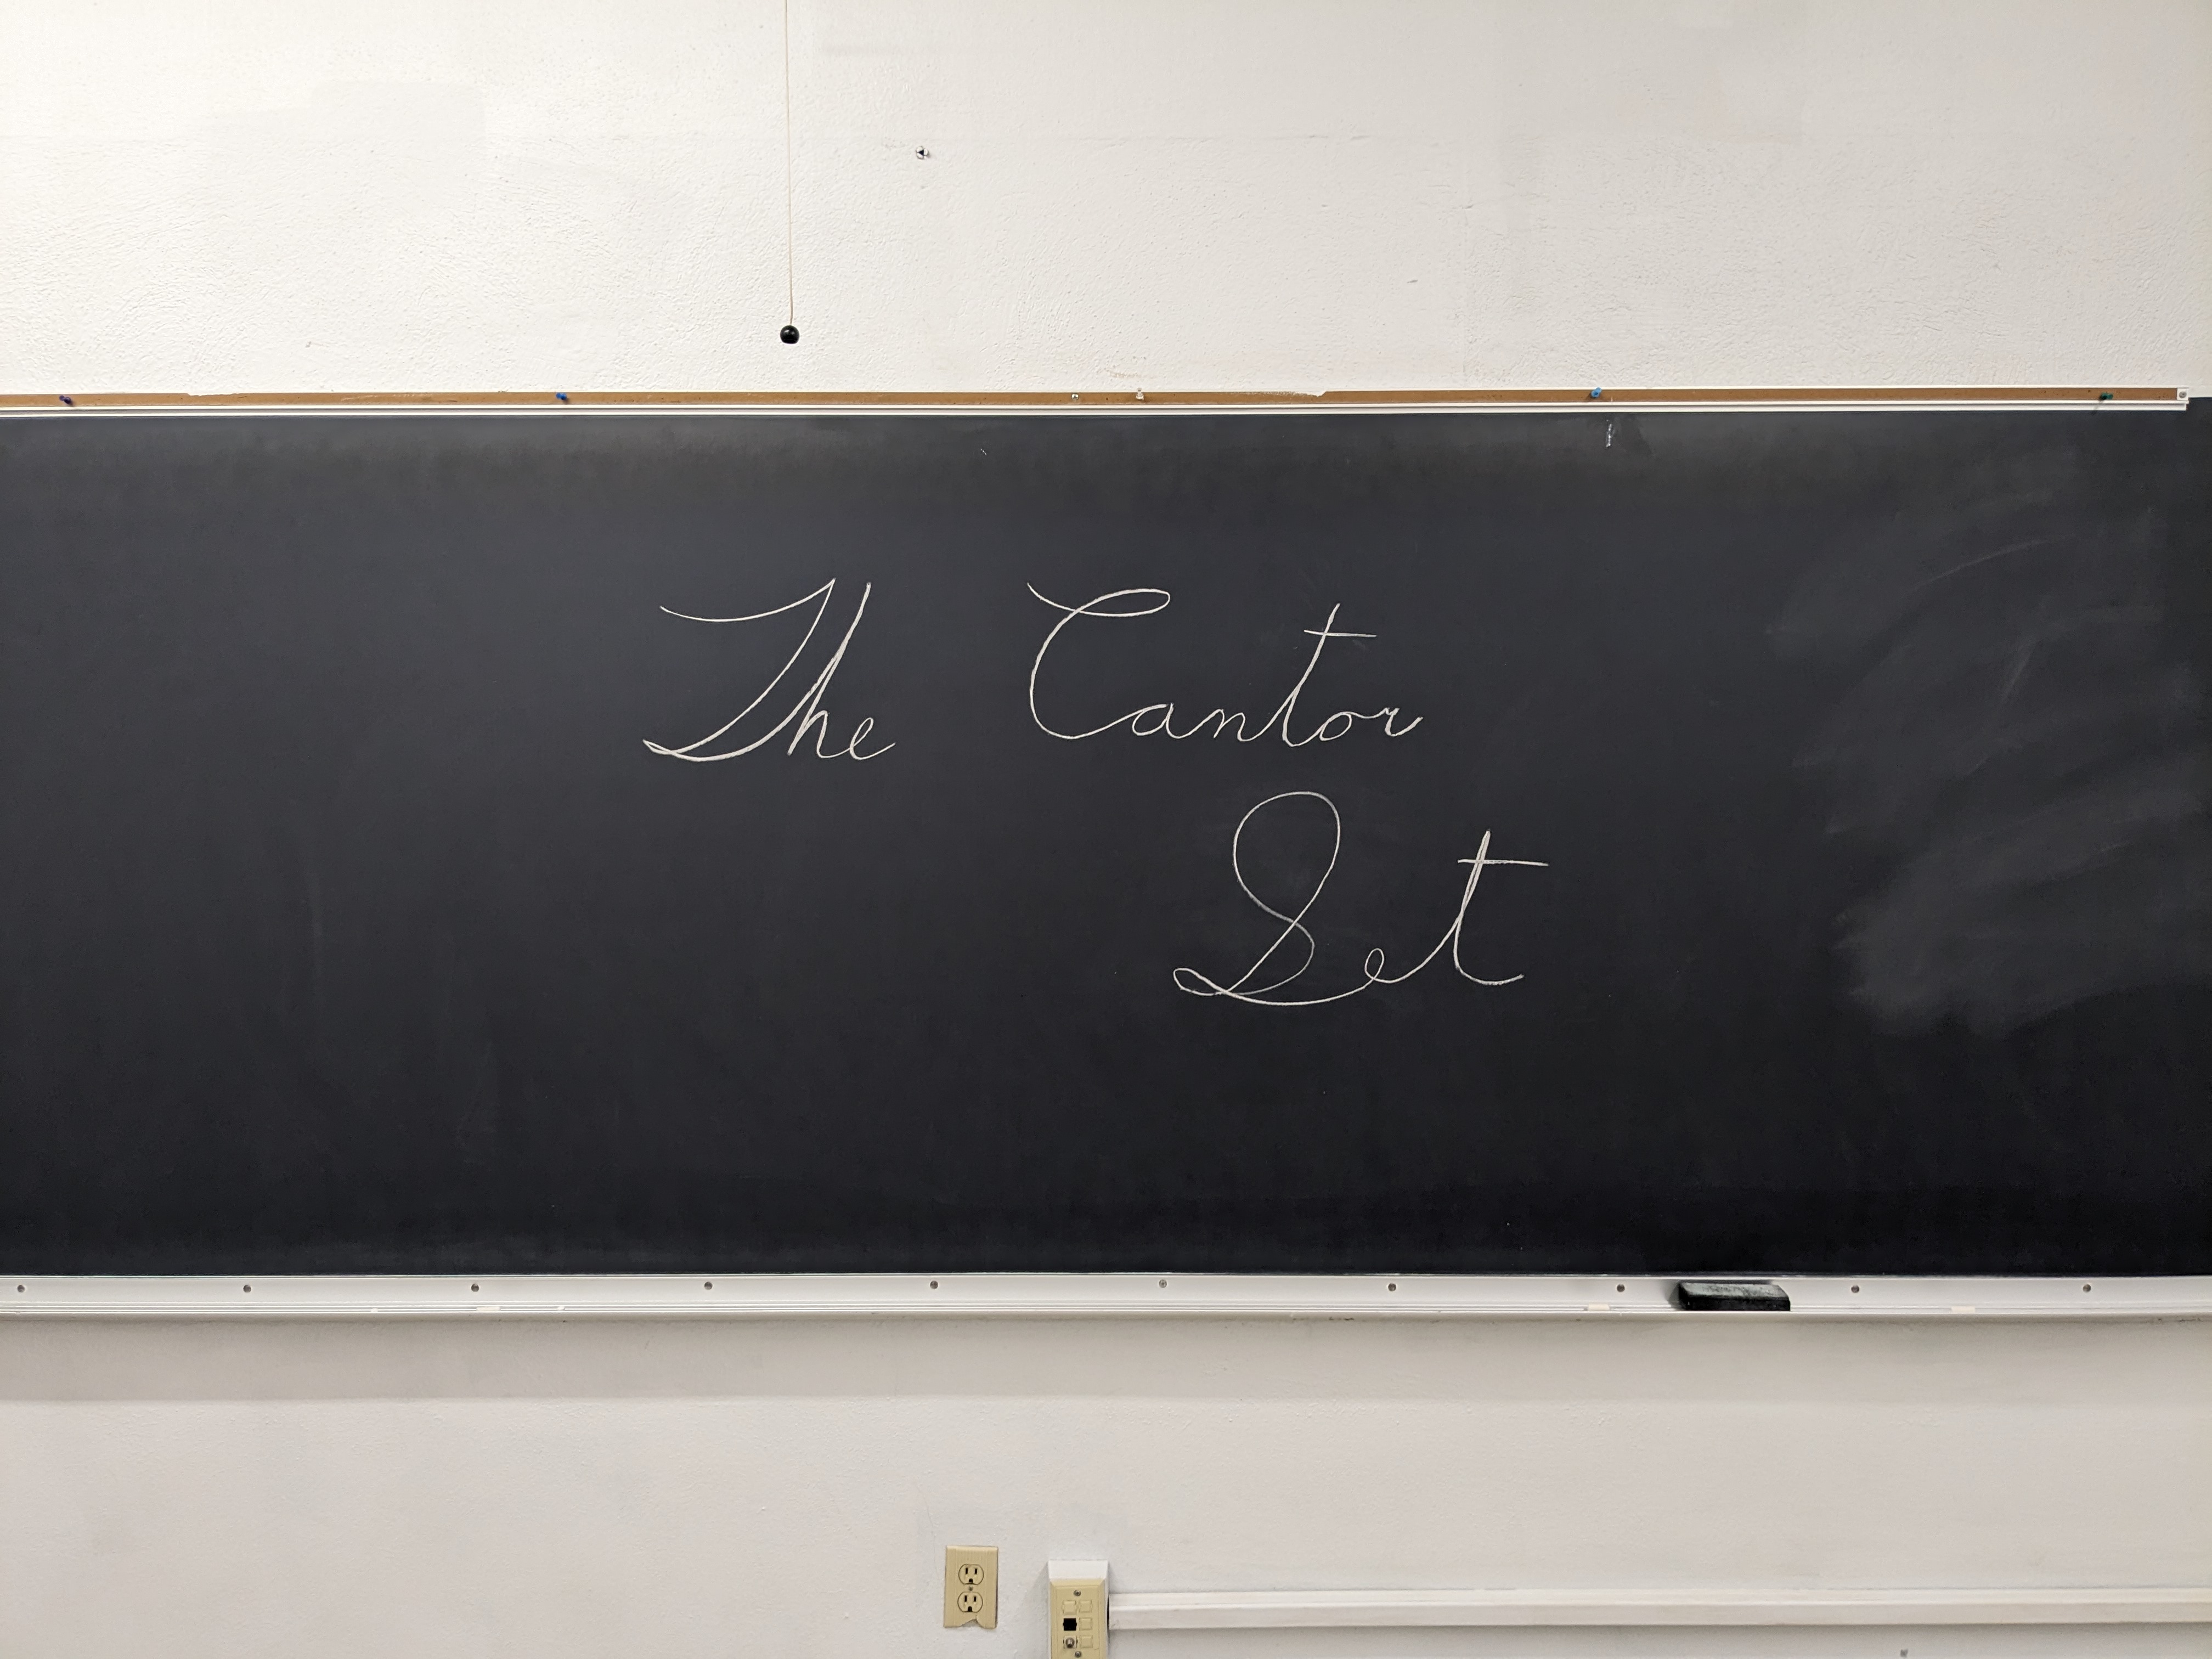 The Cantor
Set